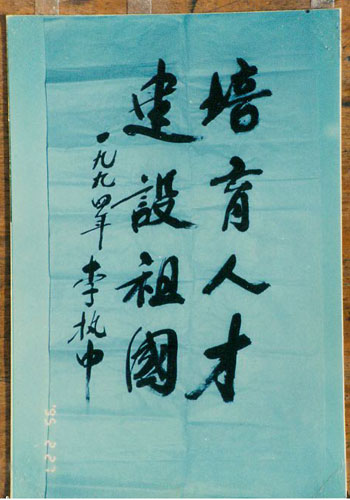 培育人才
建設祖國
一九九四年 李执中
'95 2 27